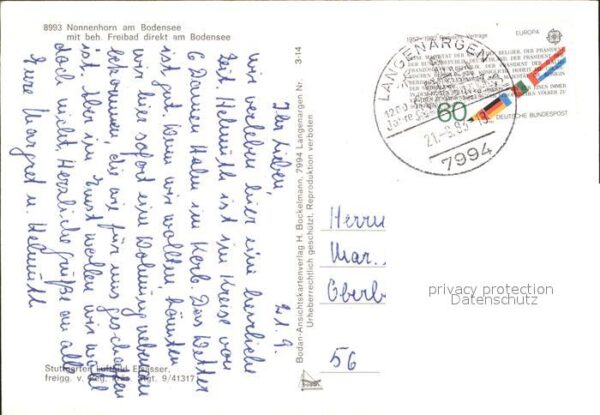 8993 Nonnenhorn am Bodensee
mit beh. Freibad direkt am Bodensee
21.9.
Ihr Lieben,
wir verleben hier eine herrliche
Zeit. Helmuth ist im Kreise von
6 Damen Hahn im Korb. Das Wetter
ist gut. Wenn wir wollten, könnten
wir hier sofort eine Wohnung nebenan
bekommen, die wie für uns geschaffen
ist. Aber im Ernst wollen wir wohl
doch nicht. Herzliche Grüße an alle
Eure Margret u. Helmuth
Stuttgarter Luftbild Elsässer,
freigg. v. Reg. Präs. Stgt. 9/41317
Bodan-Ansichtskartenverlag H. Bockelmann, 7994 Langenargen Nr. 3-14
Urheberrechtlich geschützt. Reproduktion verboten
1957-1982 Römische Verträge
EUROPA
CEPT
60
DEUTSCHE BUNDESPOST
LANGENARGEN
21.-9.83
7994
Herrn
Mar..
Oberb
56
privacy protection
Datenschutz